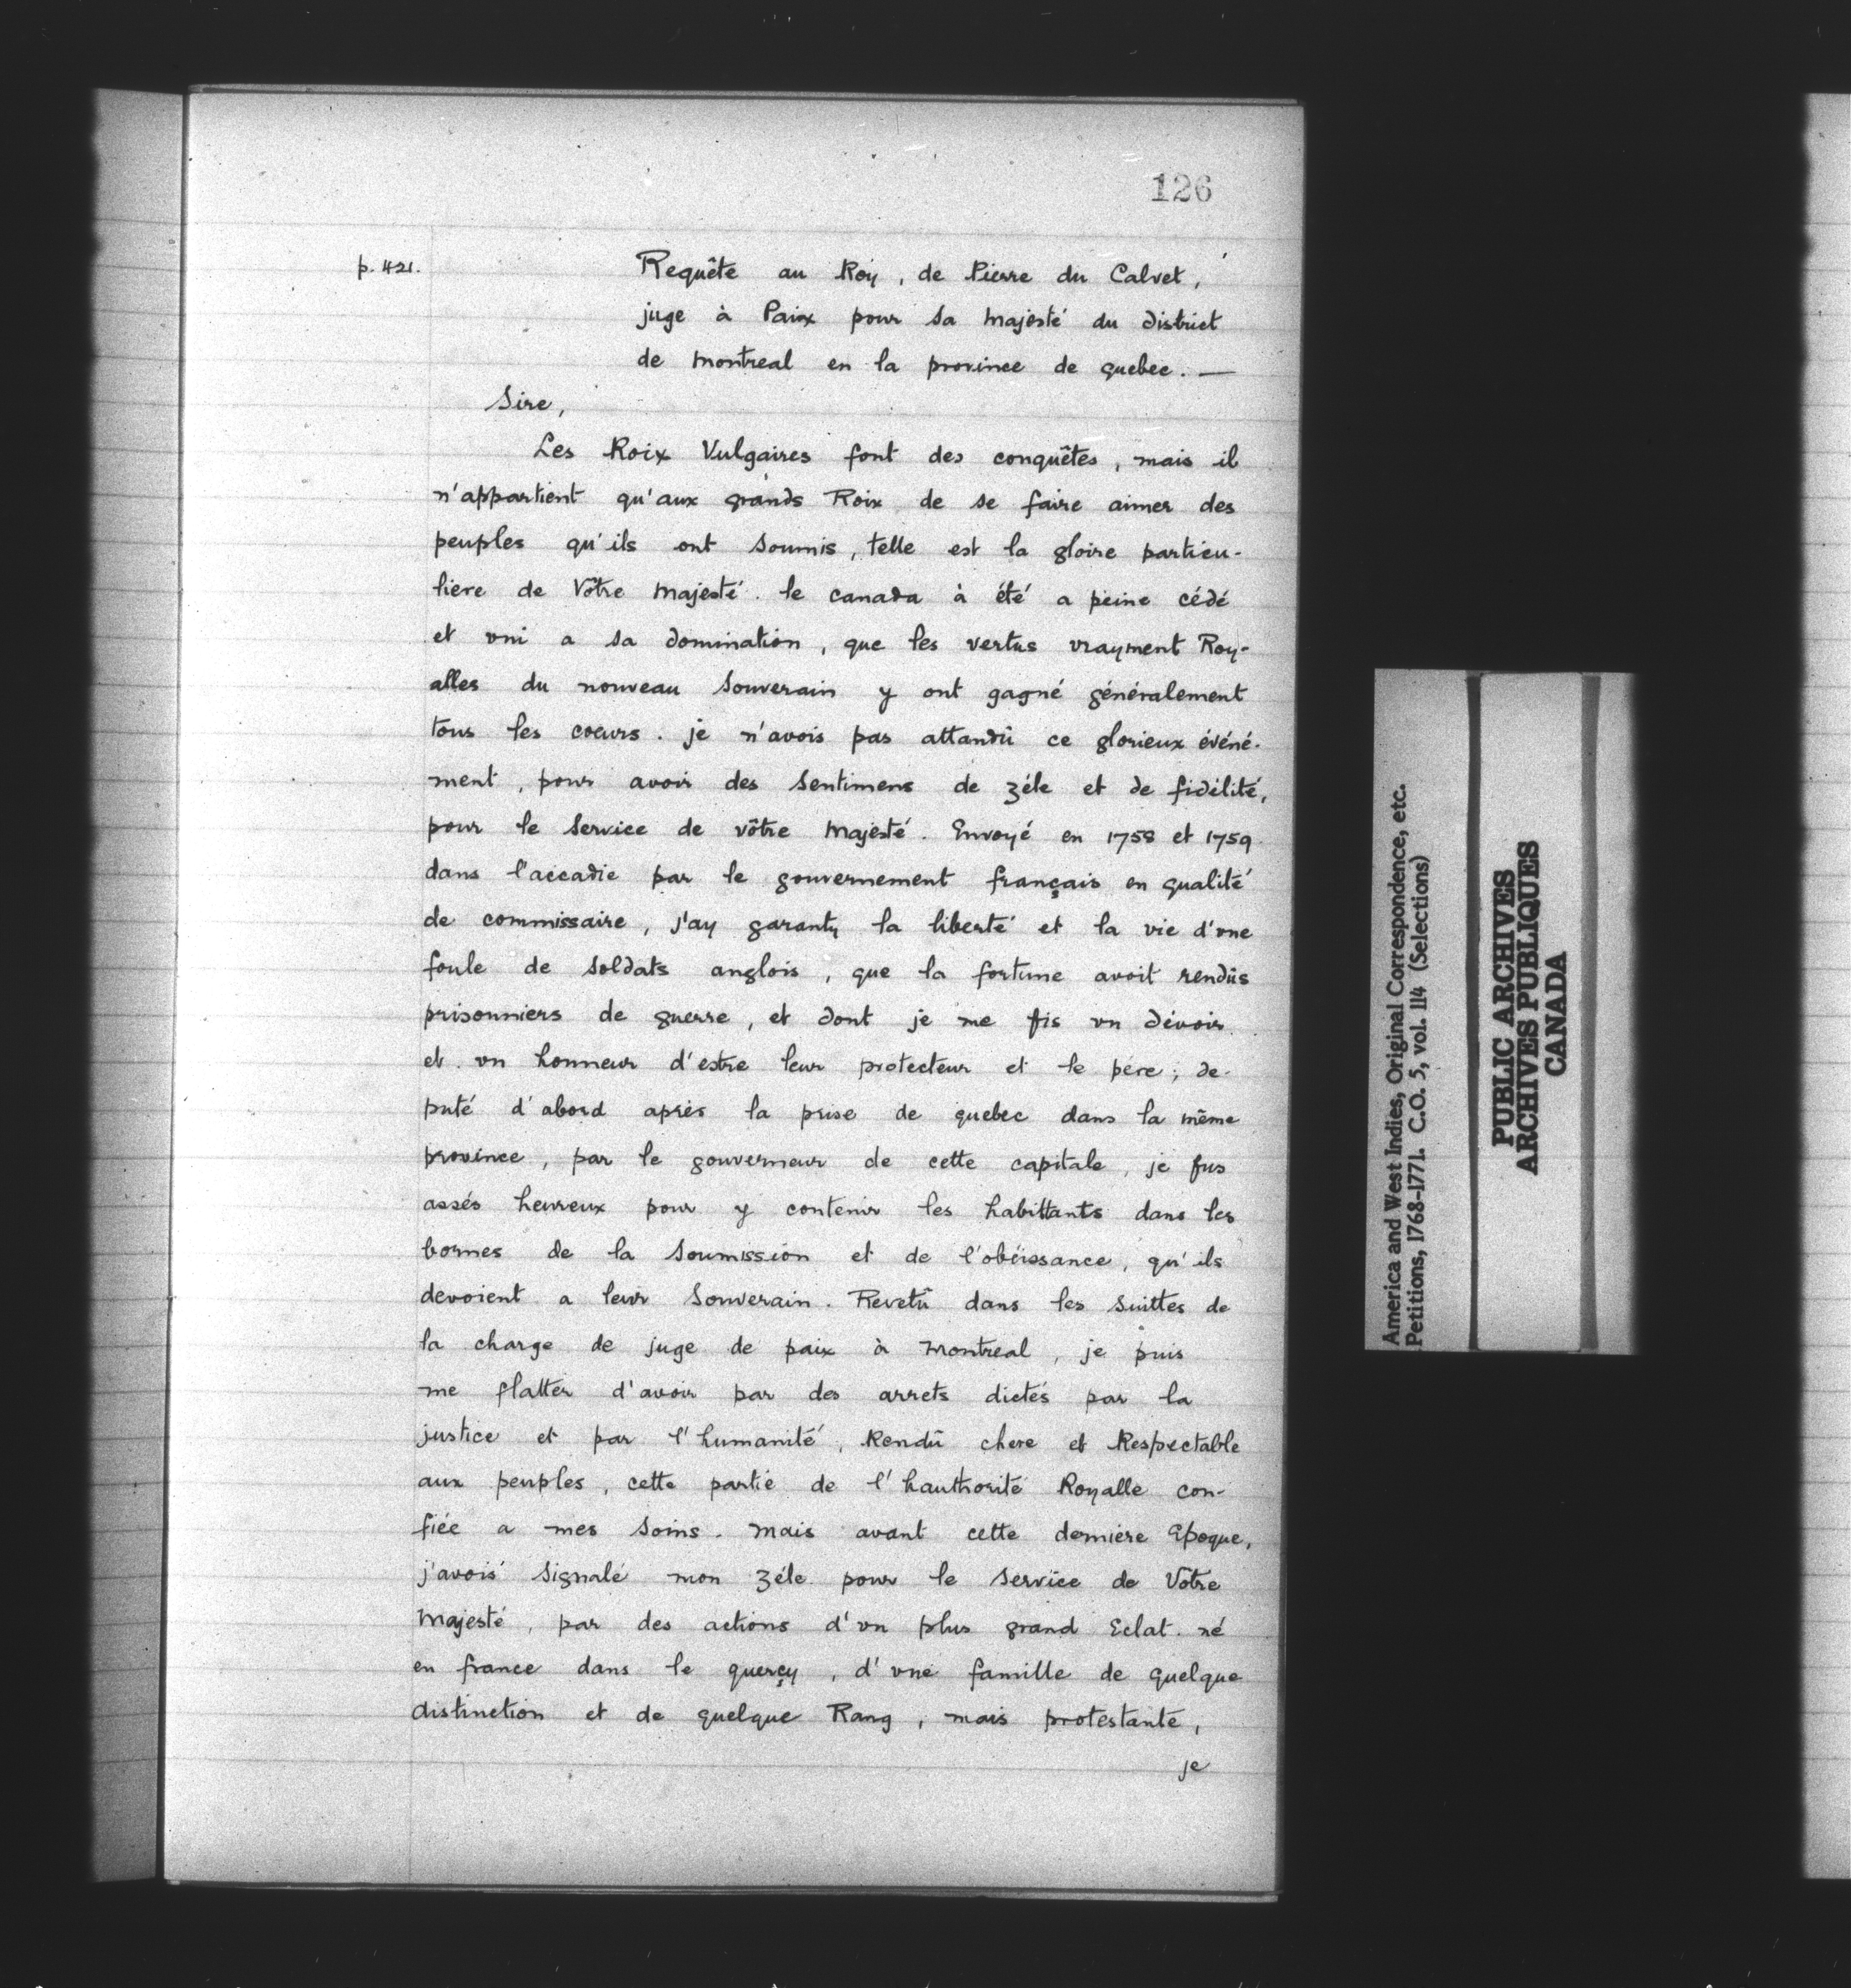 126
p. 421.
Requête au Roy, de Pierre du Calvet,
juge à Paix pour sa majesté du district
de montreal en la province de quebec. —
Sire,
Les Roix Vulgaires font des conquêtes, mais il
n'appartient qu'aux grands Roix de se faire aimer des
peuples qu'ils ont soumis, telle est la gloire particu-
liere de Vôtre majesté. le canada à été a peine cédé
et vni a sa domination, que les vertus vrayment Roy-
alles du nouveau souverain y ont gagné généralement
tous les coeurs. je n'avois pas attandû ce glorieux événé-
ment, pour avoir des sentimens de zéle et de fidélité,
pour le service de vôtre majesté. Envoyé en 1758 et 1759
dans l'accadie par le gouvernement français en qualité
de commissaire, j'ay garanty la liberté et la vie d'vne
foule de soldats anglois, que la fortune avoit rendûs
prisonniers de guerre, et dont je me fis vn dévoir
et vn honneur d'estre leur protecteur et le pére; de-
puté d'abord après la prise de quebec dans la même
province, par le gouverneur de cette capitale, je fus
assés heureux pour y contenir les habittants dans les
bornes de la soumission et de l'obéissance, qu'ils
devoient a leur souverain. Revetû dans les suittes de
la charge de juge de paix à montreal, je puis
me flatter d'avoir par des arrets dictés par la
justice et par l'humanité, Rendû chere et Respectable
aux peuples, cette partie de l'hauthorité Royalle con-
fiée a mes soins. mais avant cette derniere Epoque,
j'avois signalé mon zéle pour le service de Votre
majesté, par des actions d'vn plus grand Eclat. né
en france dans le querçy, d'vne famille de quelque
distinction et de quelque Rang, mais protestante,
je
America and West Indies, Original Correspondence, etc.
Petitions, 1768-1771. C.O. 5, vol. 114 (Selections)
PUBLIC ARCHIVES
ARCHIVES PUBLIQUES
CANADA